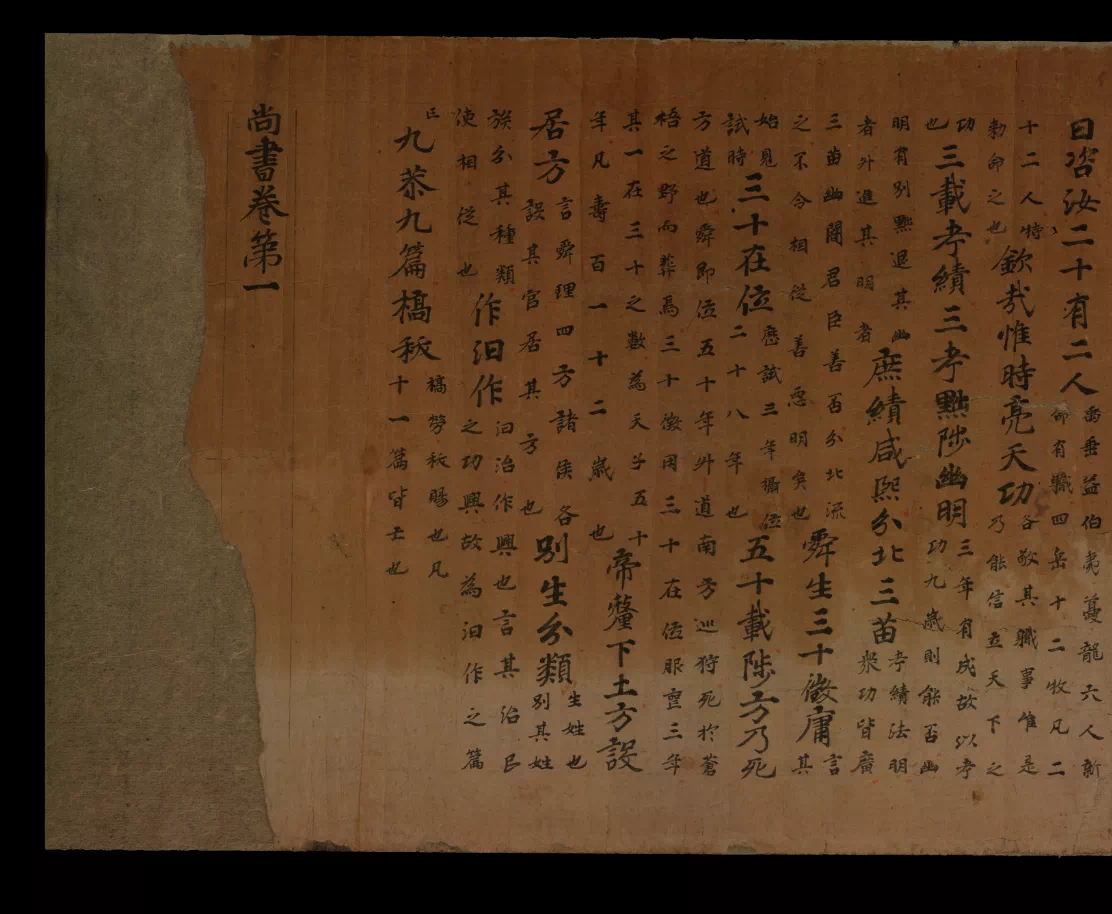 曰咨汝二十有二人禹垂益伯夷夔龍六人新命有職四岳十二牧凡二
十二人特勅命之也欽哉惟時亮天功各敬其職事惟是乃能信立天下之
功也三載考績三考黜陟幽明三年有成故以考功九歲則能否幽
明有別黜退其幽者外進其明者庶績咸熙分北三苗考績法明衆功皆廣
三苗幽闇君臣善否分北流之不令相從善惡明矣也舜生三十徵庸言其
始見試時三十在位歷試三年攝位二十八年也五十載陟方乃死
方道也舜即位五十年外道南方巡狩死於蒼梧之野而葬焉三十徵用三十在位服喪三年
其一在三十之數為天子五十年凡壽百一十二歲也帝釐下土方設
居方言舜理四方諸侯各設其官居其方也別生分類生姓也別其姓
族分其種類使相從也作汨作汨治作興也言其治民之功興故為汨作之篇
亡九恭九篇槁飫槁勞飫賜也凡十一篇皆亡也
尚書卷第一